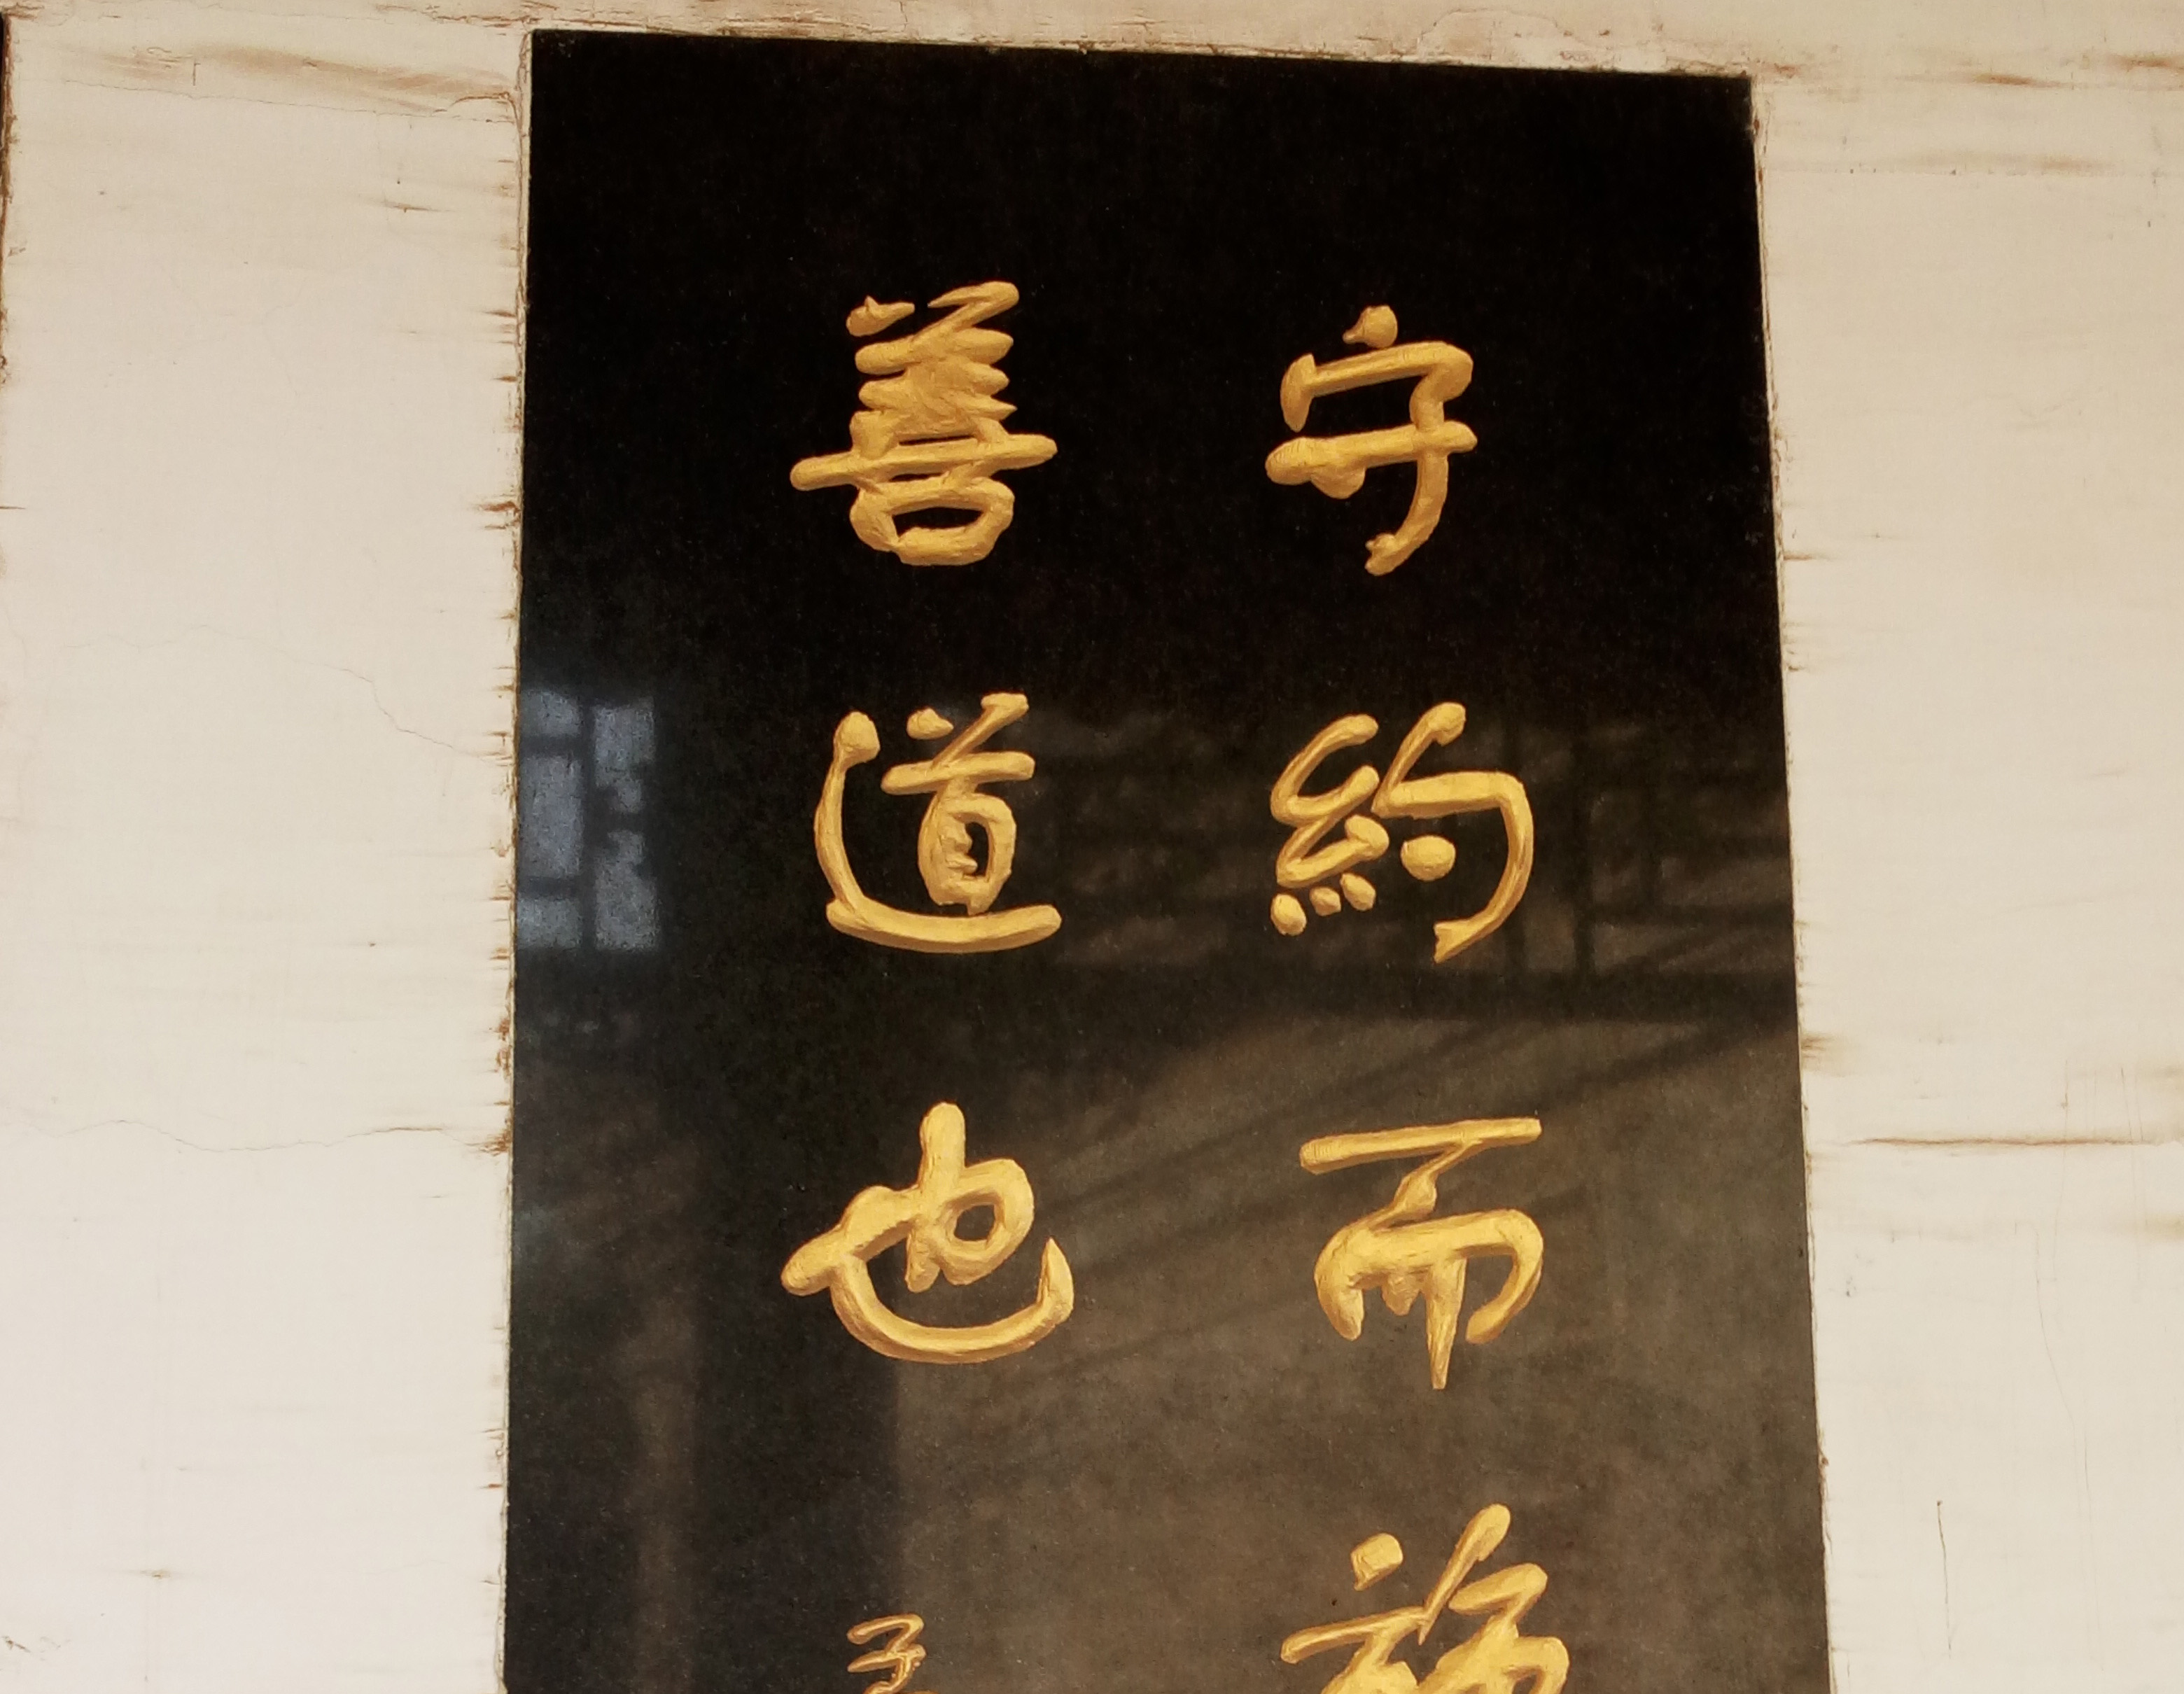 守約而施
善道也